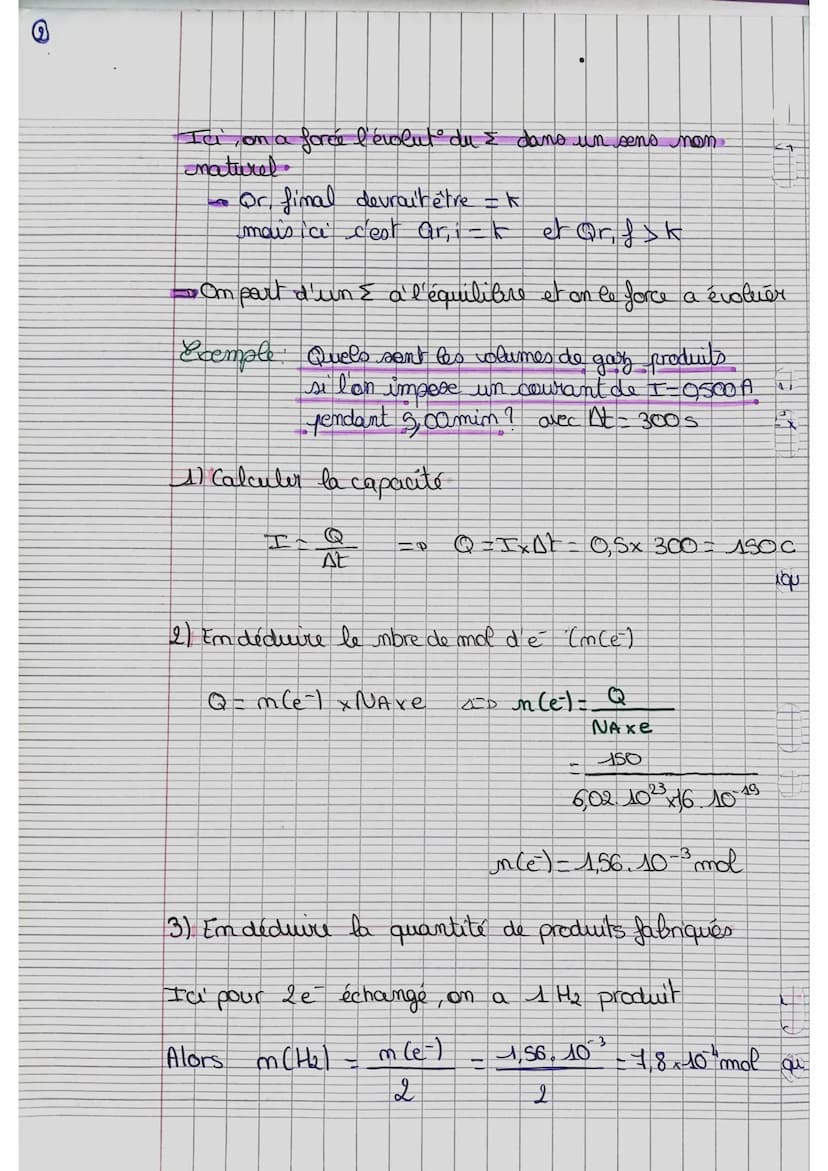 2
Ici, on a forcé l'évolut° du Σ dans un sens non
naturel.
→ Qr, final devrait être = k
mais ici c'est Qr,i = k et Qr,f > k
⇒ On part d'un Σ à l'équilibre et on le force a évoluer
Exemple: Quels sont les volumes de gaz produits
si l'on impose un courant de I = 0,500A
pendant 5,00 min? avec Δt = 300s
1) Calculer la capacité
I = Q/Δt => Q = I×Δt = 0,5 × 300 = 150C
2) En déduire le nbre de mol d'e⁻ (n(e⁻)
Q = n(e⁻) × NA × e <=> n(e⁻) = Q/NA×e
= 150/6,02.10²³×1,6.10⁻¹⁹
n(e⁻) = 1,56.10⁻³ mol
3) En déduire la quantité de produits fabriqués
Ici pour 2e⁻ échangé, on a 1 H2 produit
Alors n(H2) = n(e⁻)/2 = 1,56.10⁻³/2 = 7,8×10⁻⁴ mol